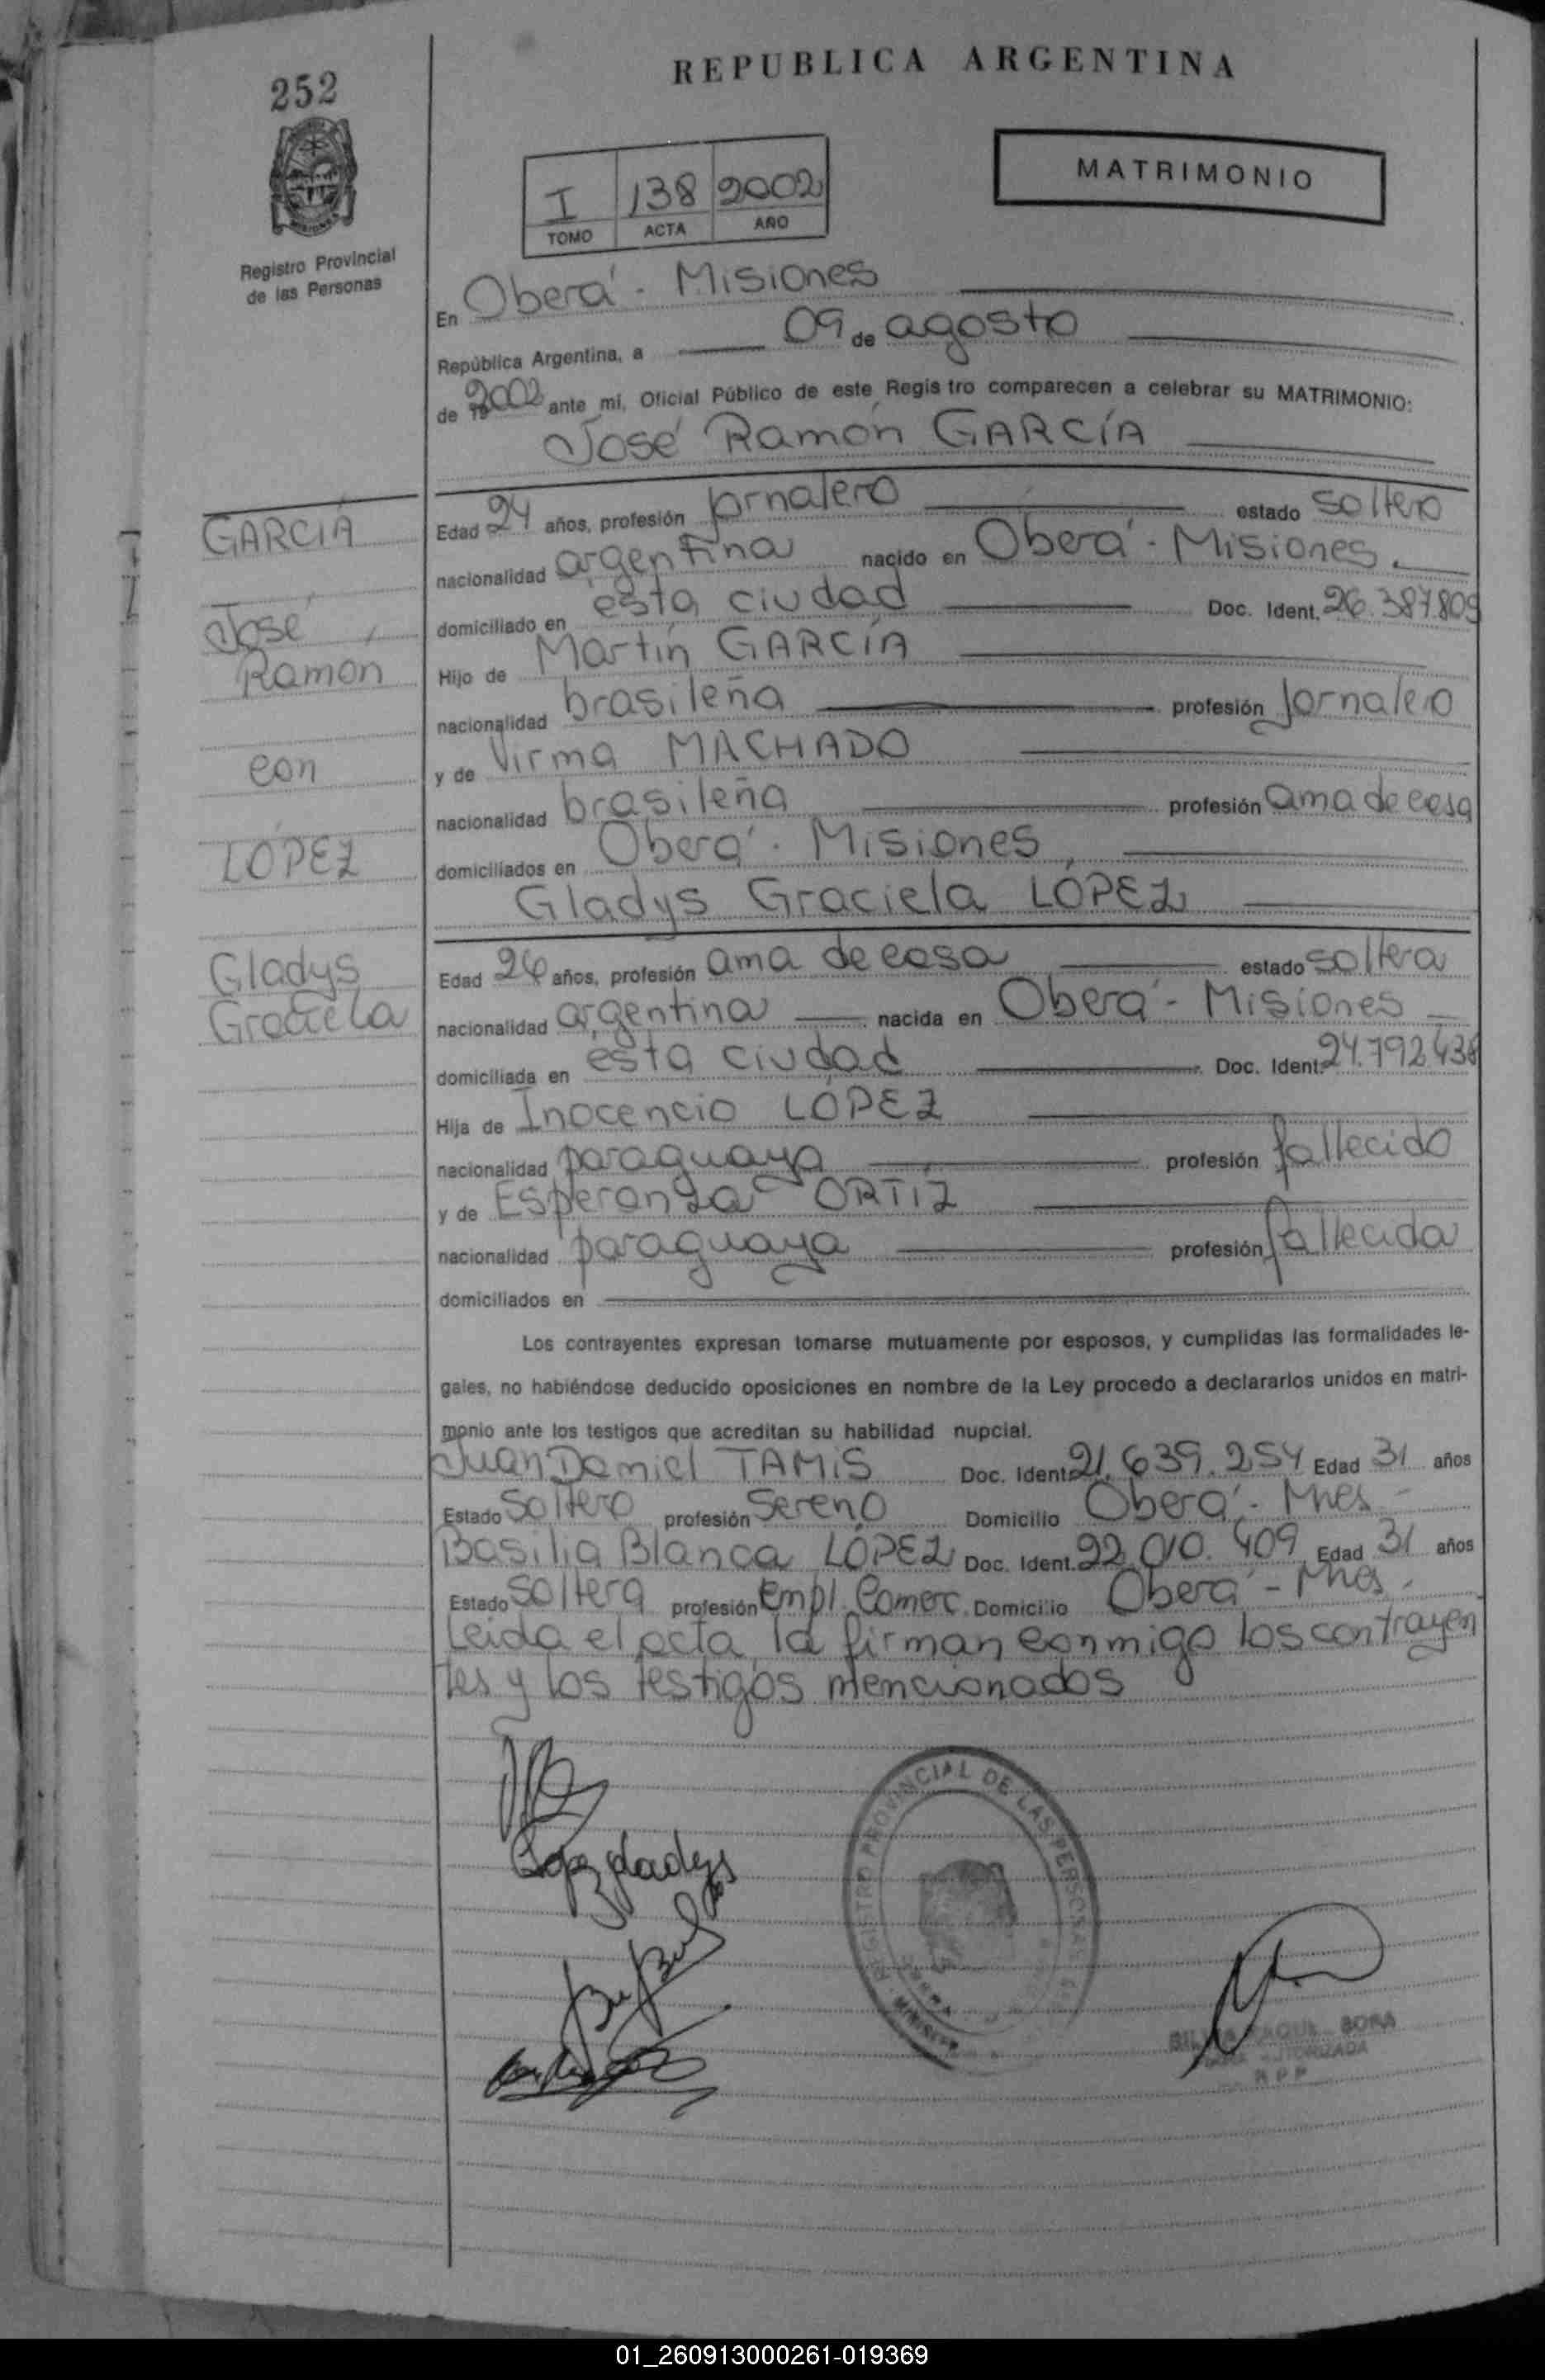 252
REPUBLICA ARGENTINA
MATRIMONIO
I 138 2002
TOMO ACTA AÑO
Registro Provincial
de las Personas
En Oberá - Misiones
República Argentina, a 09 de agosto
de 2002 ante mi, Oficial Público de este Regis tro comparecen a celebrar su MATRIMONIO:
José Ramón GARCÍA
GARCIA
José
Ramón
con
LÓPEZ
Gladys
Graciela
Edad 24 años, profesión jornalero estado soltero
nacionalidad argentina nacido en Oberá - Misiones
domiciliado en esta ciudad Doc. Ident. 26.387.809
Hijo de Martín GARCÍA
nacionalidad brasileña profesión Jornalero
y de Virma MACHADO
nacionalidad brasileña profesión ama de casa
domiciliados en Oberá - Misiones
Gladys Graciela LÓPEZ
Edad 26 años, profesión ama de casa estado soltera
nacionalidad argentina nacida en Oberá - Misiones
domiciliada en esta ciudad Doc. Ident. 24.792.438
Hija de Inocencio LÓPEZ
nacionalidad paraguaya profesión fallecido
y de Esperanza ORTIZ
nacionalidad paraguaya profesión fallecida
domiciliados en
Los contrayentes expresan tomarse mutuamente por esposos, y cumplidas las formalidades le-
gales, no habiéndose deducido oposiciones en nombre de la Ley procedo a declararlos unidos en matri-
monio ante los testigos que acreditan su habilidad nupcial.
Juan Daniel TAMIS Doc. Ident. 21.639.254 Edad 31 años
Estado Soltero profesión Sereno Domicilio Oberá - Mnes
Basilia Blanca LÓPEZ Doc. Ident. 22.010.409 Edad 31 años
Estado Soltera profesión Empl. Comerc. Domicilio Oberá - Mnes
Leida el acta, la firman conmigo los contrayen
tes y los testigos mencionados
Lopez gladys
REGISTRO PROVINCIAL DE LAS PERSONAS
R P P
01_260913000261-019369